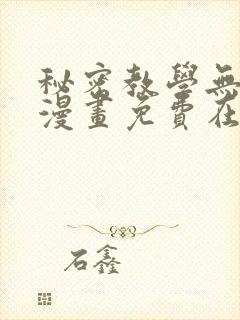 秘密教學無
漫畫免費在
石鑫